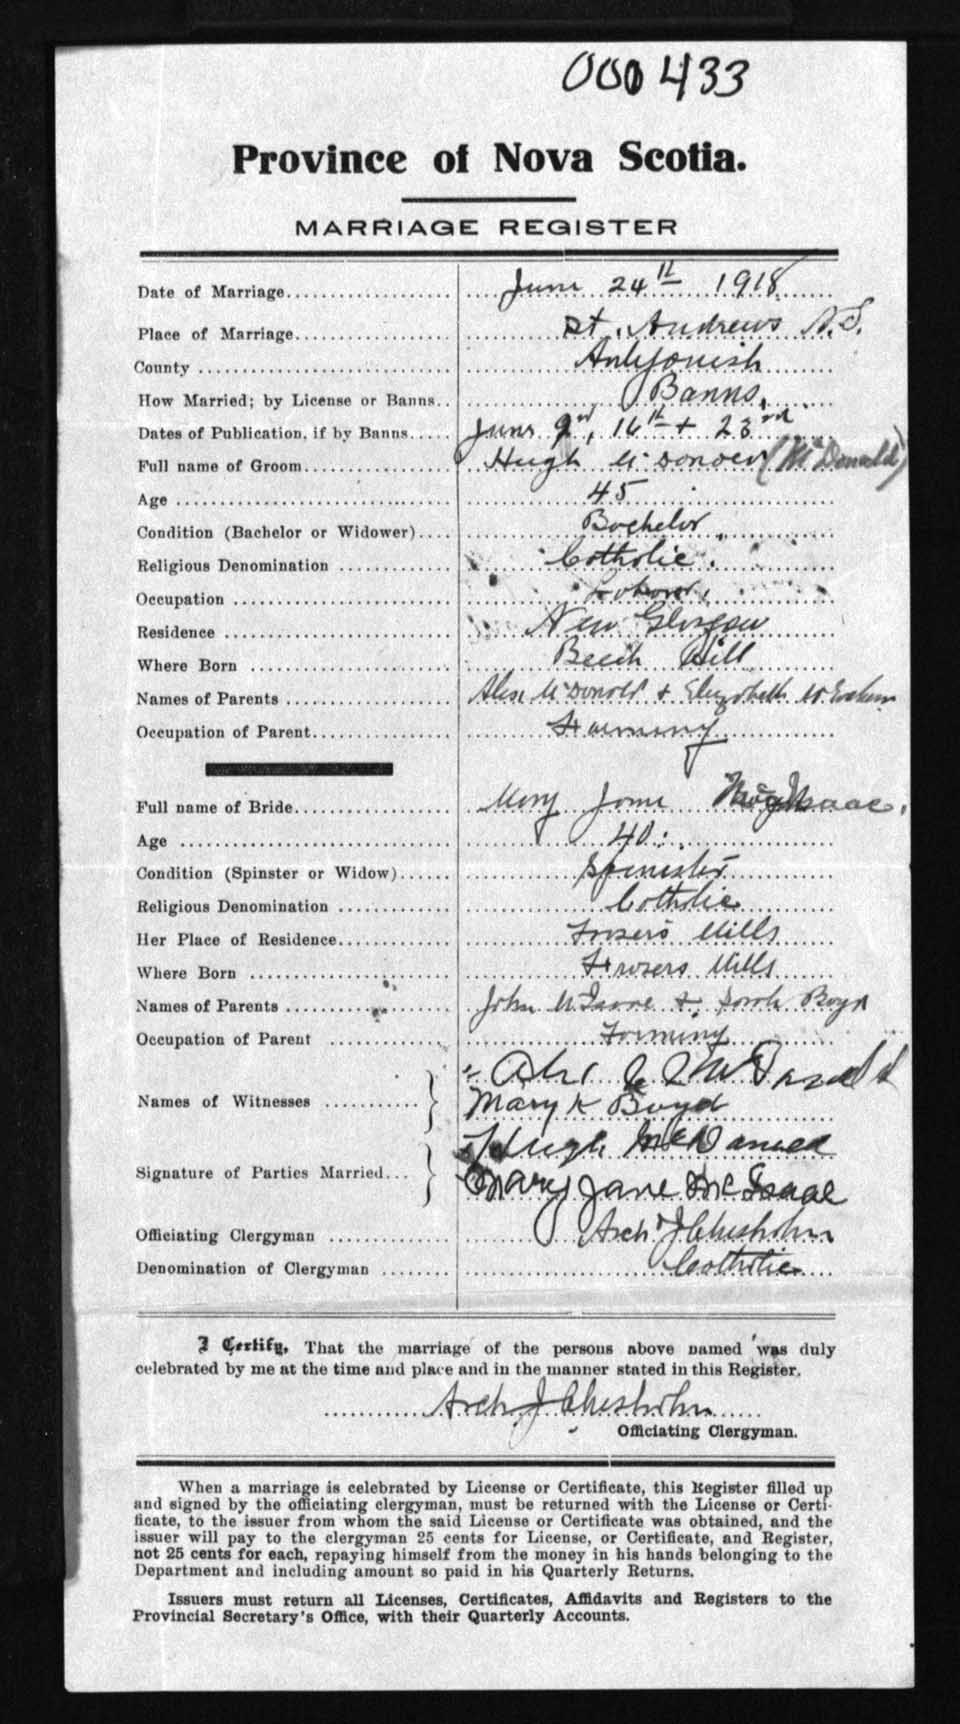 000433
Province of Nova Scotia.
MARRIAGE REGISTER
Date of Marriage.................... June 24th 1918
Place of Marriage................... St. Andrews N.S.
County ............................. Antigonish
How Married; by License or Banns.. Banns.
Dates of Publication, if by Banns..... June 9th, 16th + 23rd
Full name of Groom................. Hugh McDonald (McDonald)
Age ............................... 45
Condition (Bachelor or Widower).... Bachelor
Religious Denomination ............. Catholic.
Occupation ......................... Labour.
Residence .......................... New Glasgow
Where Born ........................ Beech Hill
Names of Parents ................... Alex McDonald + Elizabeth
Occupation of Parent................ Farming
Full name of Bride.................. Mary Jane McIsaac.
Age ............................... 40.
Condition (Spinster or Widow)...... Spinster
Religious Denomination ............. Catholic
Her Place of Residence.............. Frasers Mills
Where Born ........................ Frasers Mills
Names of Parents ................... John McIsaac + Sarah Boyd
Occupation of Parent ............... Farming
Names of Witnesses ........... McDonald
Mary K Boyd
Signature of Parties Married... Hugh McDonald
Mary Jane McIsaac
Officiating Clergyman ............... Arch J Chisholm
Denomination of Clergyman ........ Catholic
I Certify, That the marriage of the persons above named was duly
celebrated by me at the time and place and in the manner stated in this Register.
Arch J Chisholm
Officiating Clergyman.
When a marriage is celebrated by License or Certificate, this Register filled up
and signed by the officiating clergyman, must be returned with the License or Certi-
ficate, to the issuer from whom the said License or Certificate was obtained, and the
issuer will pay to the clergyman 25 cents for License, or Certificate, and Register,
not 25 cents for each, repaying himself from the money in his hands belonging to the
Department and including amount so paid in his Quarterly Returns.
Issuers must return all Licenses, Certificates, Affidavits and Registers to the
Provincial Secretary's Office, with their Quarterly Accounts.